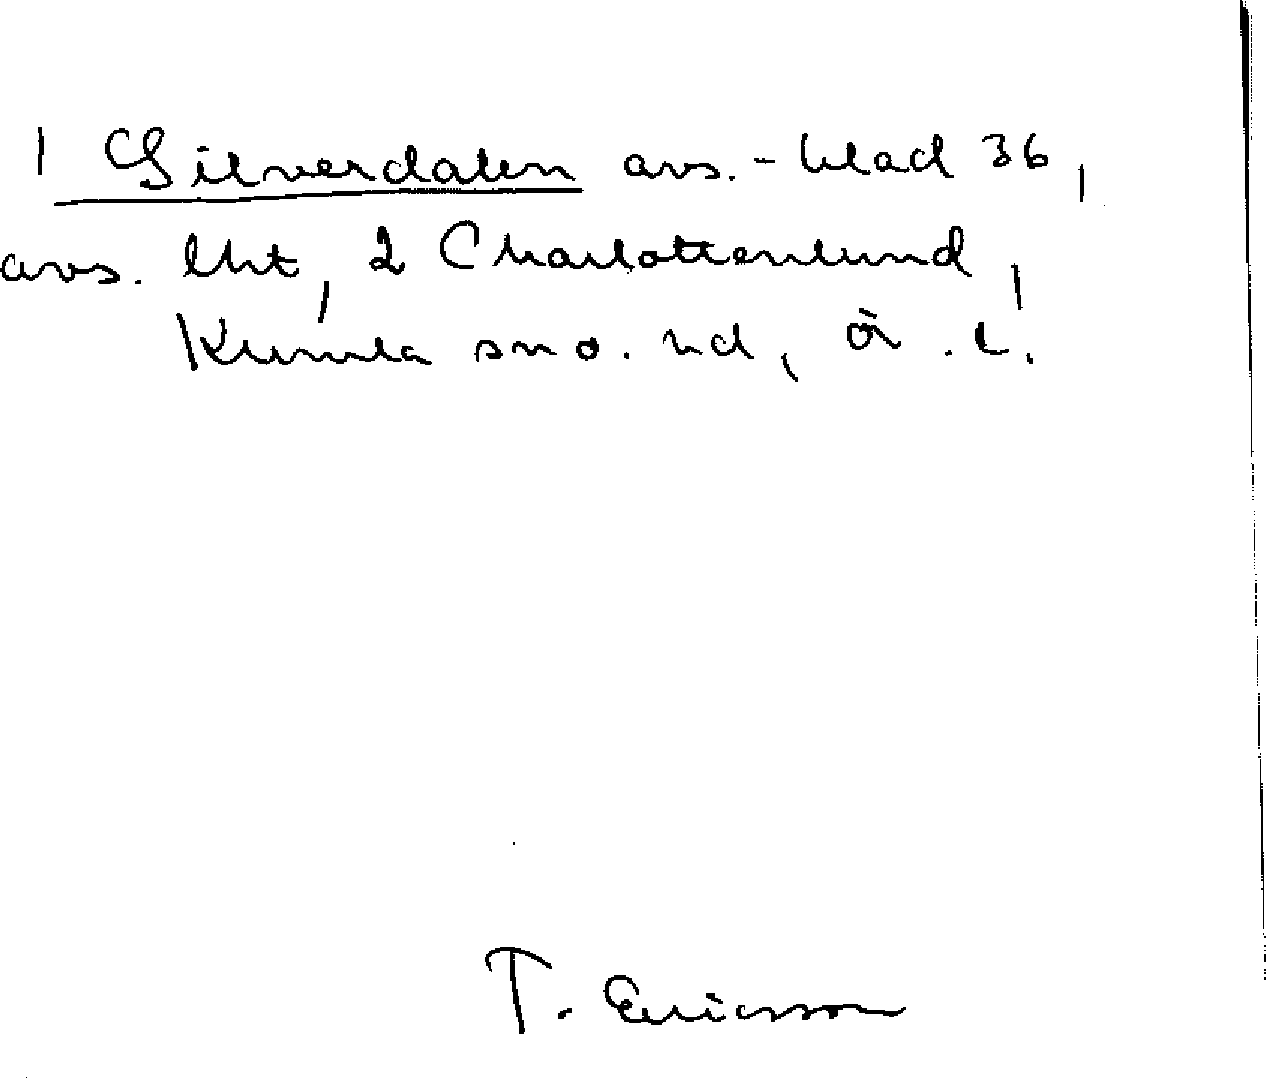 1 Silverdalen avs. - blad 36,
avs. lht, 2 Charlottenlund,
Kumla sn o. hd, Ö. l.
T. Ericsson